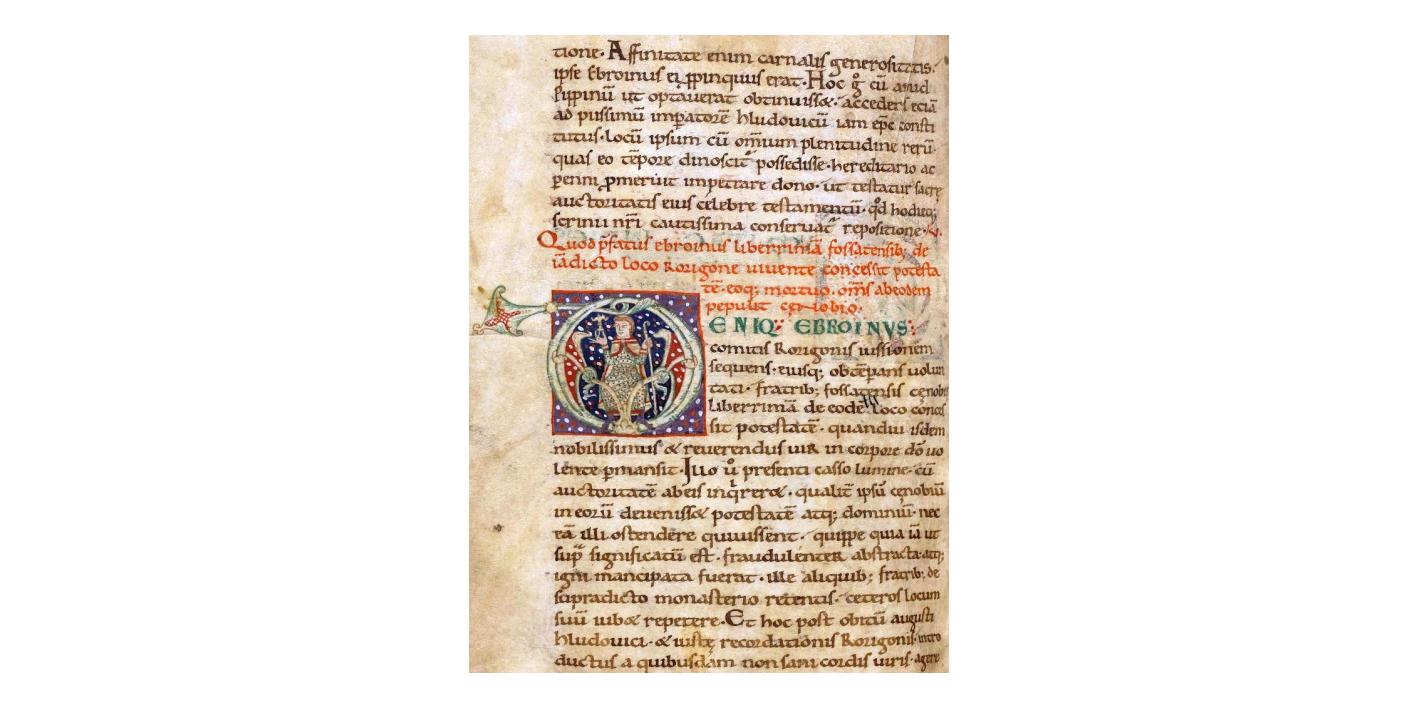 tione. Affinitate enim carnalis generositatis.
ipse Ebroinus ei ꝓpinquus erat. Hoc g̊ cū apud
pippinū ut optauerat obtinuiss&. accederꝭ eciā
ad piissimū imꝑatorē hludouicū iam epc̄ consti
tutus. locū ipsum cū om̄ium plenitudine rerū.
quas eo tēpore dinoscit᷑ possedisse. hereditario ac
ꝑenni ꝓmeruit impetrare dono. ut testatur sacrę
auctoritatis eius celebre testamentū. qd̄ hodieq;
scrinii nr̄i cautissima conseruat᷑ repositione.
Quod p̄fatus ebroinus liberrimā fossatensib; de
iādicto loco Rorigone uiuente concessit potesta
tē. eoq; mortuo. om̄s ab eodem
pepulit cęnobio.
ENIQ; EBROINVS.
comitis Rorigonis iussionem
sequens. eiusq; obtēperans uolun
tati. fratrib; fossatensis cęnobii
liberrimā de codē loco conces
sit potestatē. quandiu isdem
nobilissimus & reuerendus uir in corpore dō uo
lente ꝑmansit. Iuo ū presenti casso lumine. cū
auctoritatē ab eis inqrer&. qualit᷑ ipsū cęnobiū
in eorū deueniss& potestatē atq; dominiū. nec
eā illi ostendere quiuissent. quippe quia iā ut
sup̄ significatū est. fraudulenter abstracta. atq;
igni mancipata fuerat. ille aliquib; fratrib; de
supradicto monasterio retentis. ceteros locum
suū iub& repetere. Et hoc post obitū augusti
hludouici. & iustę recordationis Rorigonis. intro
ductus a quibusdam non sani cordis uiris. agere